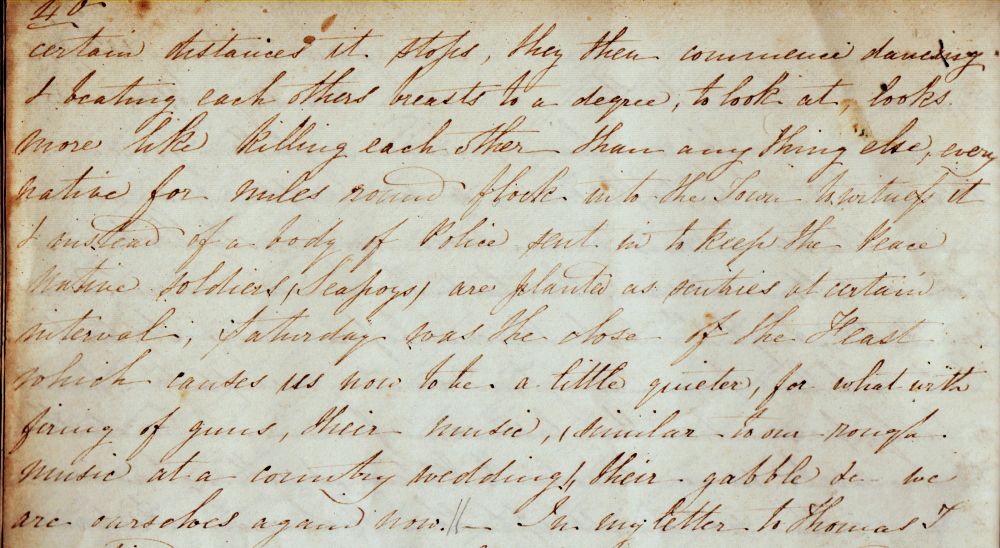 40
certain distances it stops, they then commence dancing
& beating each others breasts to a degree, to look at, looks
more like killing each other than any thing else, every
native for miles round flock into the Town to witness it
& instead of a body of Police sent in to keep the Peace
Native soldiers (Seapoys) are planted as sentries at certain
interval, Saturday was the close of the Feast
which causes us now to be a little quieter, for what with
firing of guns, their music, (similar to our rough
music at a country wedding), their gabble &c we
are ourselves again now. // — In my letter to Thomas I